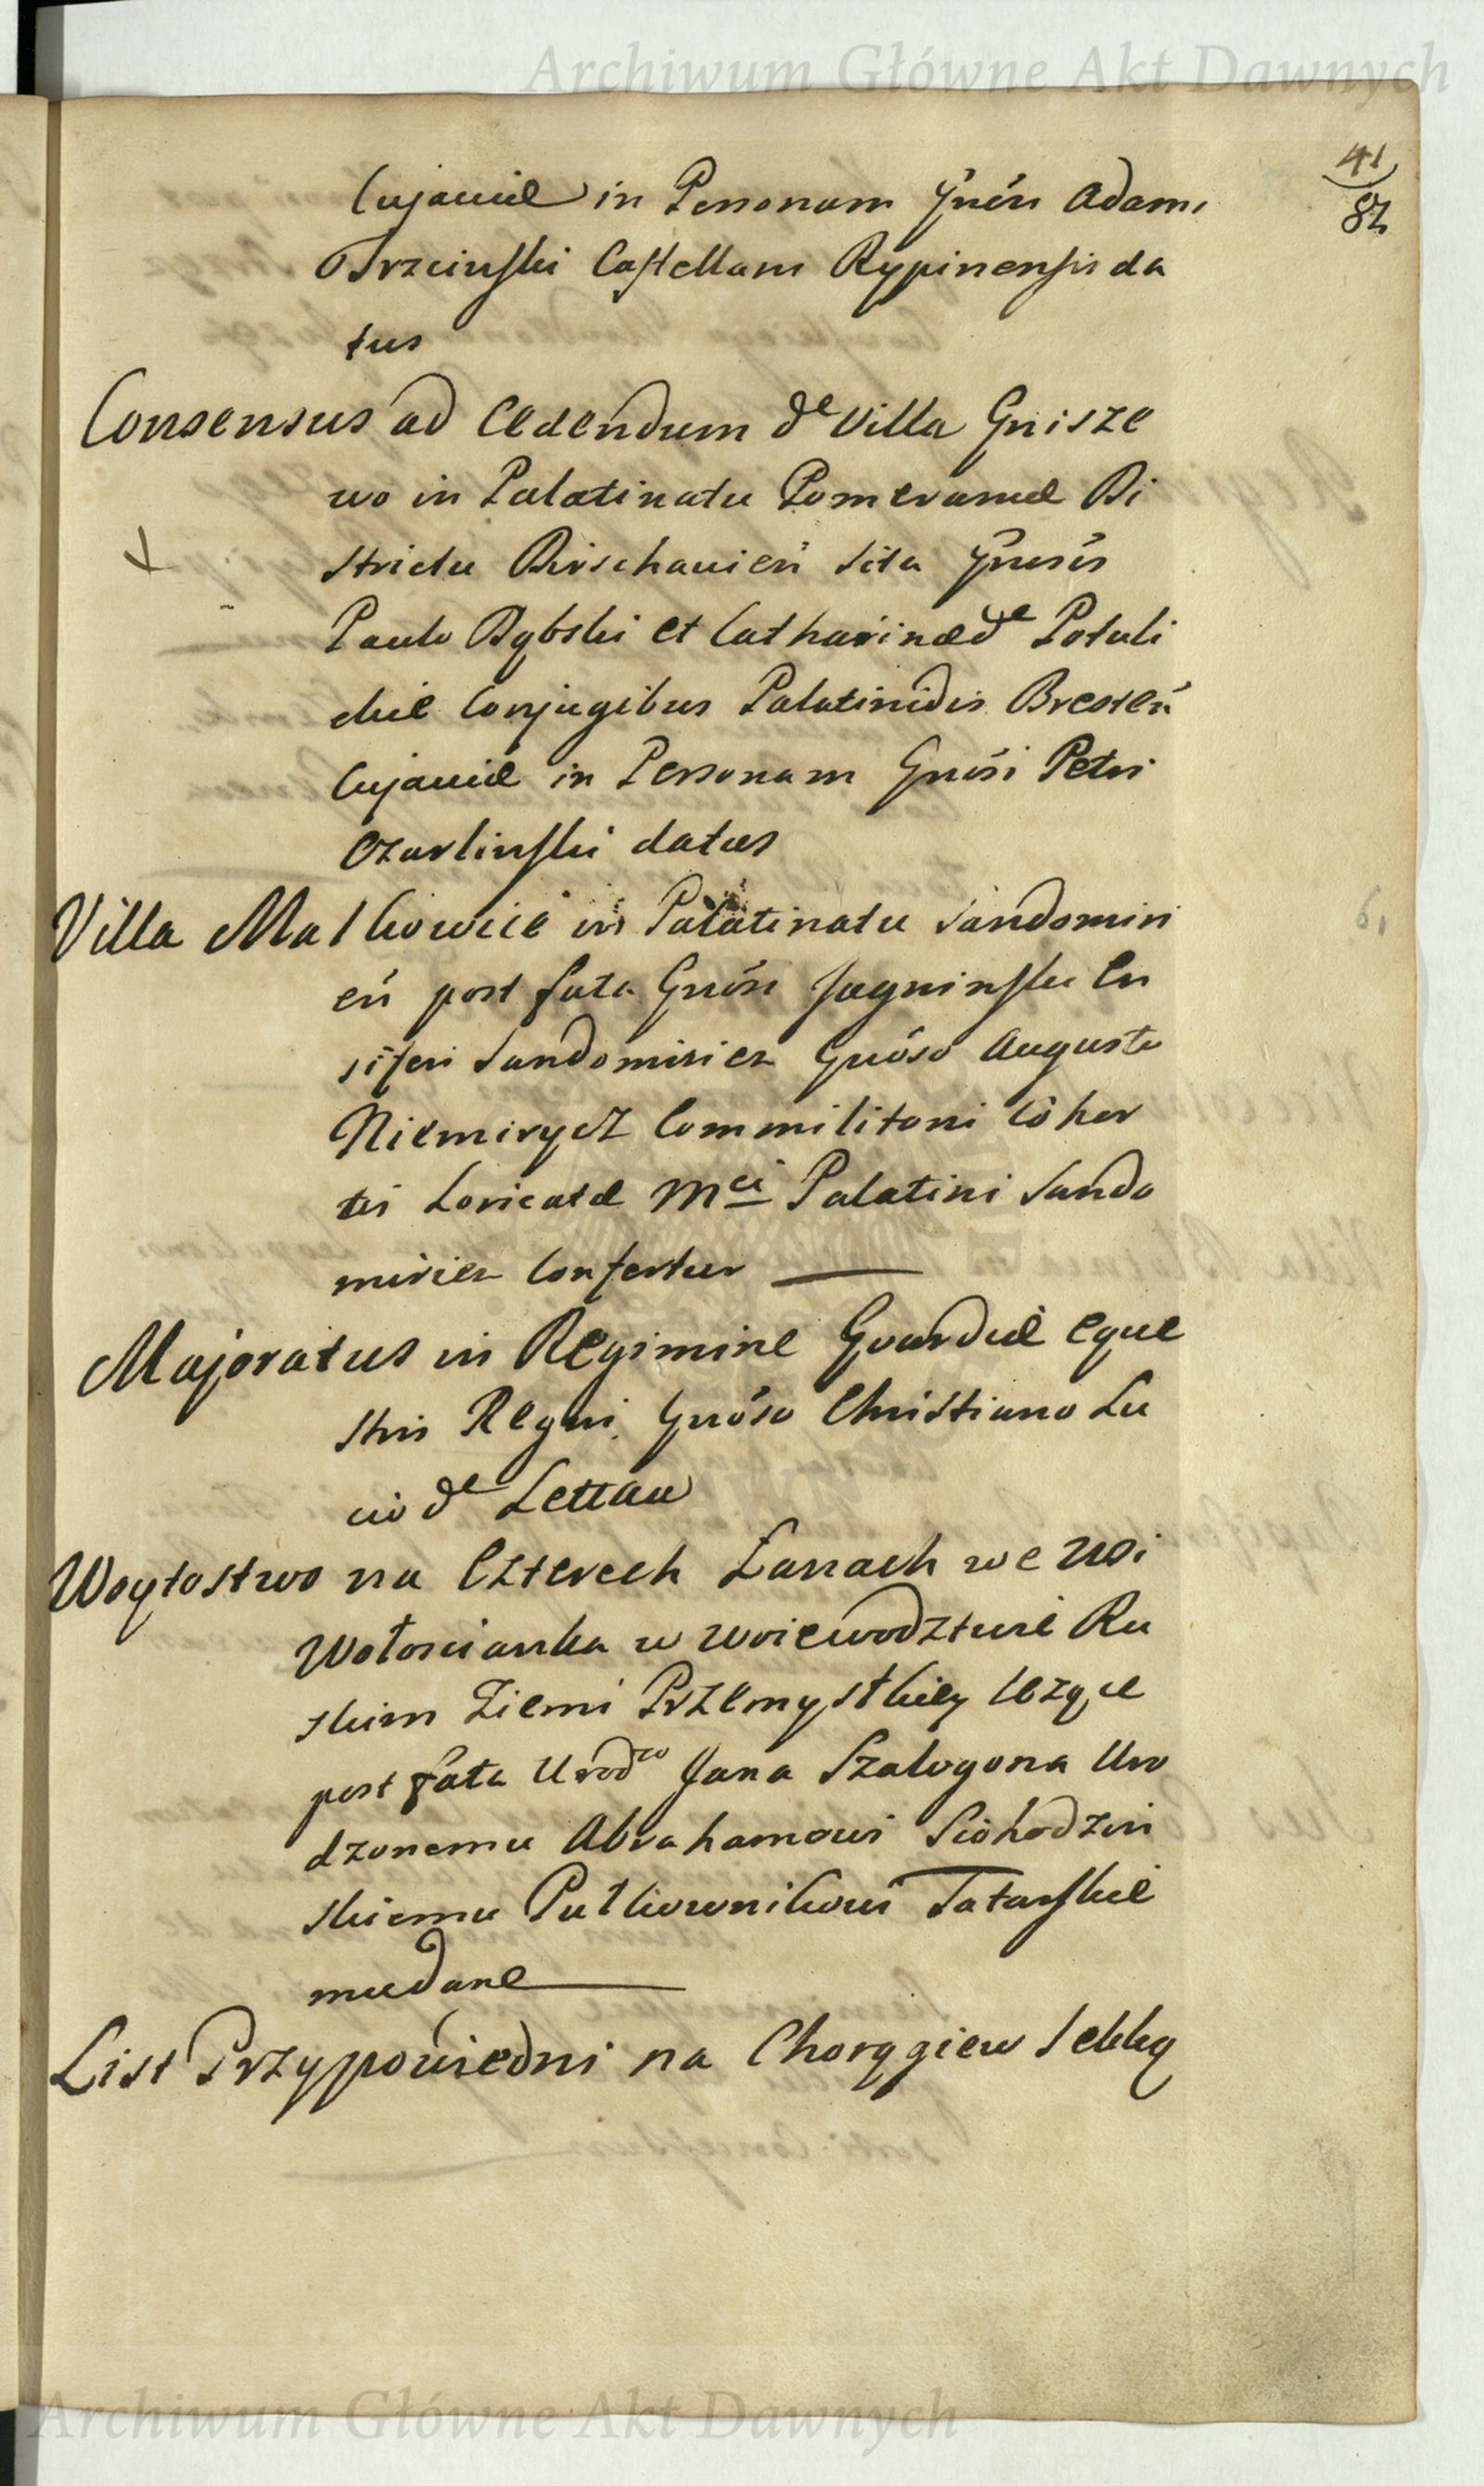 Archiwum Główne Akt Dawnych
41
82
Cujaviæ in Personam Gnēri Adami
Brzcinski Castellani Rypinensis da
tus
Consensus ad Cedendum de Villa Gnisze
wo in Palatinatu Pomeraniæ Di
strictu Dirschavień sita Gnosis
Paulo Dąbski et Catharinæ de Potuli
ckie Conjugibus Palatinidis Bresteń
Cujaviæ in Personam Gnosi Petri
Czarlinski datus
Villa Malkowice in Palatinatu Sandomiri
eń post fata Gnosi Jagninski En
siferi Sandomirien Gnoso Augusto
Niemirycz Commilitoni Cohor
tis Loricatæ Mci Palatini Sando
mirien Confertur
Majoratus in Regimine Gvardiæ eque
stris Regni Gnoso Christiano Lu
cio de Lettau
Woytostwo na Czterech Łanach we wsi
Wołoscianka w woiewodztwie Ru
skim Ziemi Przemyslkiey lezące
post fata Urodzo Jana Szalogona Uro
dzonemu Abrahamowi Siohodzin
skiemu Pułkownikowi Tatarskie
mu dane
List Przypowiedni na Chorągiew Lekką
Archiwum Główne Akt Dawnych